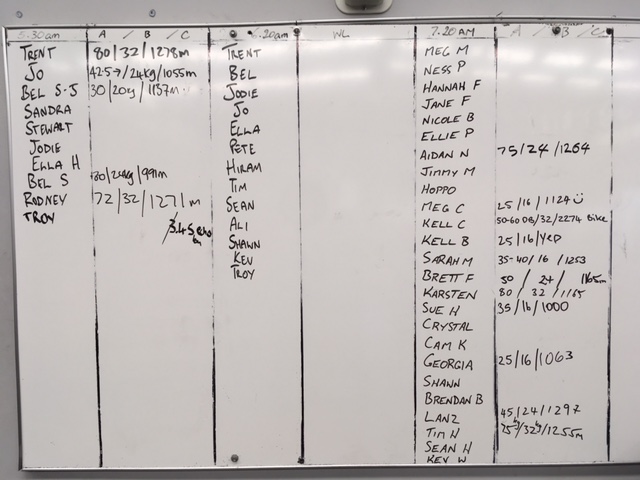 5.30am A / B / C
TRENT 80/32/1278m
JO 42.5→/24kg/1055m
BEL S-J 30/20kg/1137m
SANDRA
STEWART
JODIE
ELLA H
BEL S 80/24kg/991m
RODNEY 72/32/1271m
TROY
6.20am WL
TRENT
BEL
JODIE
JO
ELLA
PETE
HIRAM
TIM
SEAN
ALI
SHAWN
KEV
TROY
7.20AM A / B / C
MEG M
NESS P
HANNAH F
JANE F
NICOLE B
ELLIE P
AIDAN N 75/24/1264
JIMMY M
HOPPO
MEG C 25/16/1124
KELL C 50-60 DB/32/2274 Bike
KELL B 25/16/YEP
SARAH M 35-40/16/1253
BRETT F 50/24/1165m
KARSTEN 80/32/1165
SUE H 35/16/1000
CRYSTAL
CAM K
GEORGIA 25/16/1063
SHAWN
BRENDAN B
LANZ 45/24/1297
TIM H /1255m
SEAN H
KEV W